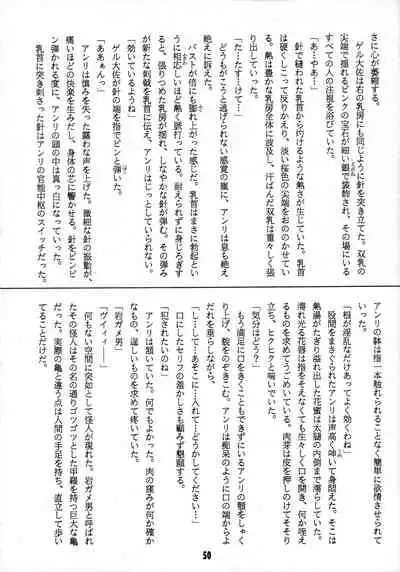 さに心が萎縮する。
ゲル大佐は右の乳房にも同じように針を突き立てた。双乳の
尖端で揺れるピンクの宝石が細い銀で装飾され、その場にいる
すべての人の注視を浴びていた。
「あ…やあ…」
針で穂われた乳首から灼けるような熱さが生じていた。乳首
は硬くしこって反りかえり、淡い桜色の尖端をおののかせてい
る。熱は豊かな乳房全体に波及し、汗ばんだ双乳は重々しく張
り出していた。
「た…たす…けて…」
どうもがこうと逃げられない感覚の嵐に、アンリは息も絶え
絶えに訴えた。
バストが倍にも膨れ上がった感じだ。乳首はまさに勃起とい
うに相応しいほど熱く脈打っている。耐えられずに身じろぎす
ると、張りつめた乳房が揺れ、しなやかな針が弾む。その弾み
が新たな刺戟を乳首に伝え、アンリはじっとしていられない。
「効いているようね」
ゲル大佐は針の端を指でピンと弾いた。
「ああぁんっ」
アンリは慎みを失った露わな声を上げた。微細な針の振動が、
痛いほどの快楽を生みだし、身体の芯に響かせる。針をピンピ
ン弾かれる度に、アンリの頭の中は真っ白になっていった。
乳首に突き刺さった針はアンリの官能中枢のスイッチだった。
アンリの躰は指一本触れられることなく簡単に欲情させられて
いった。
「根が淫乱なだけあってよく効くわね」
股間をまさぐられたアンリは声高く呻いて身悶えた。そこは
熱湯がたぎり溢れ出した花蜜は太腿の内側まで濡らしていた。
濡れ光る花唇は指をそえなくても生々しく口を開き、何か咥え
るものを求めてうごめいている。肉芽は皮を押しのけてそそり
立ち、ヒクヒクと喘いでいた。
「気分はどう？」
もう満足に口をきくこともできずにいるアンリの顎をしゃく
り上げ、貌をのぞきこむ。アンリは痴呆のように口の端からよ
だれを垂らしながら、
「し…して…あそこに…入れて…どうかしてください…」
口にしたセリフの羞かしさも顧みず懇願する。
「犯されたいのね」
アンリは頷いていた。何でもよかった。肉の窪みが何か確か
なもの、逞しいものを求めて疼いていた。
「岩ガメ男」
「ヴイィィ――」
何もない空間に突如として怪人が現れた。岩ガメ男と呼ばれ
たその怪人はその名の通りゴツゴツとした甲羅を持つ巨大な亀
だった。実際の亀と違う点は人間の手足を持ち、直立して歩い
てることだけだ。
50